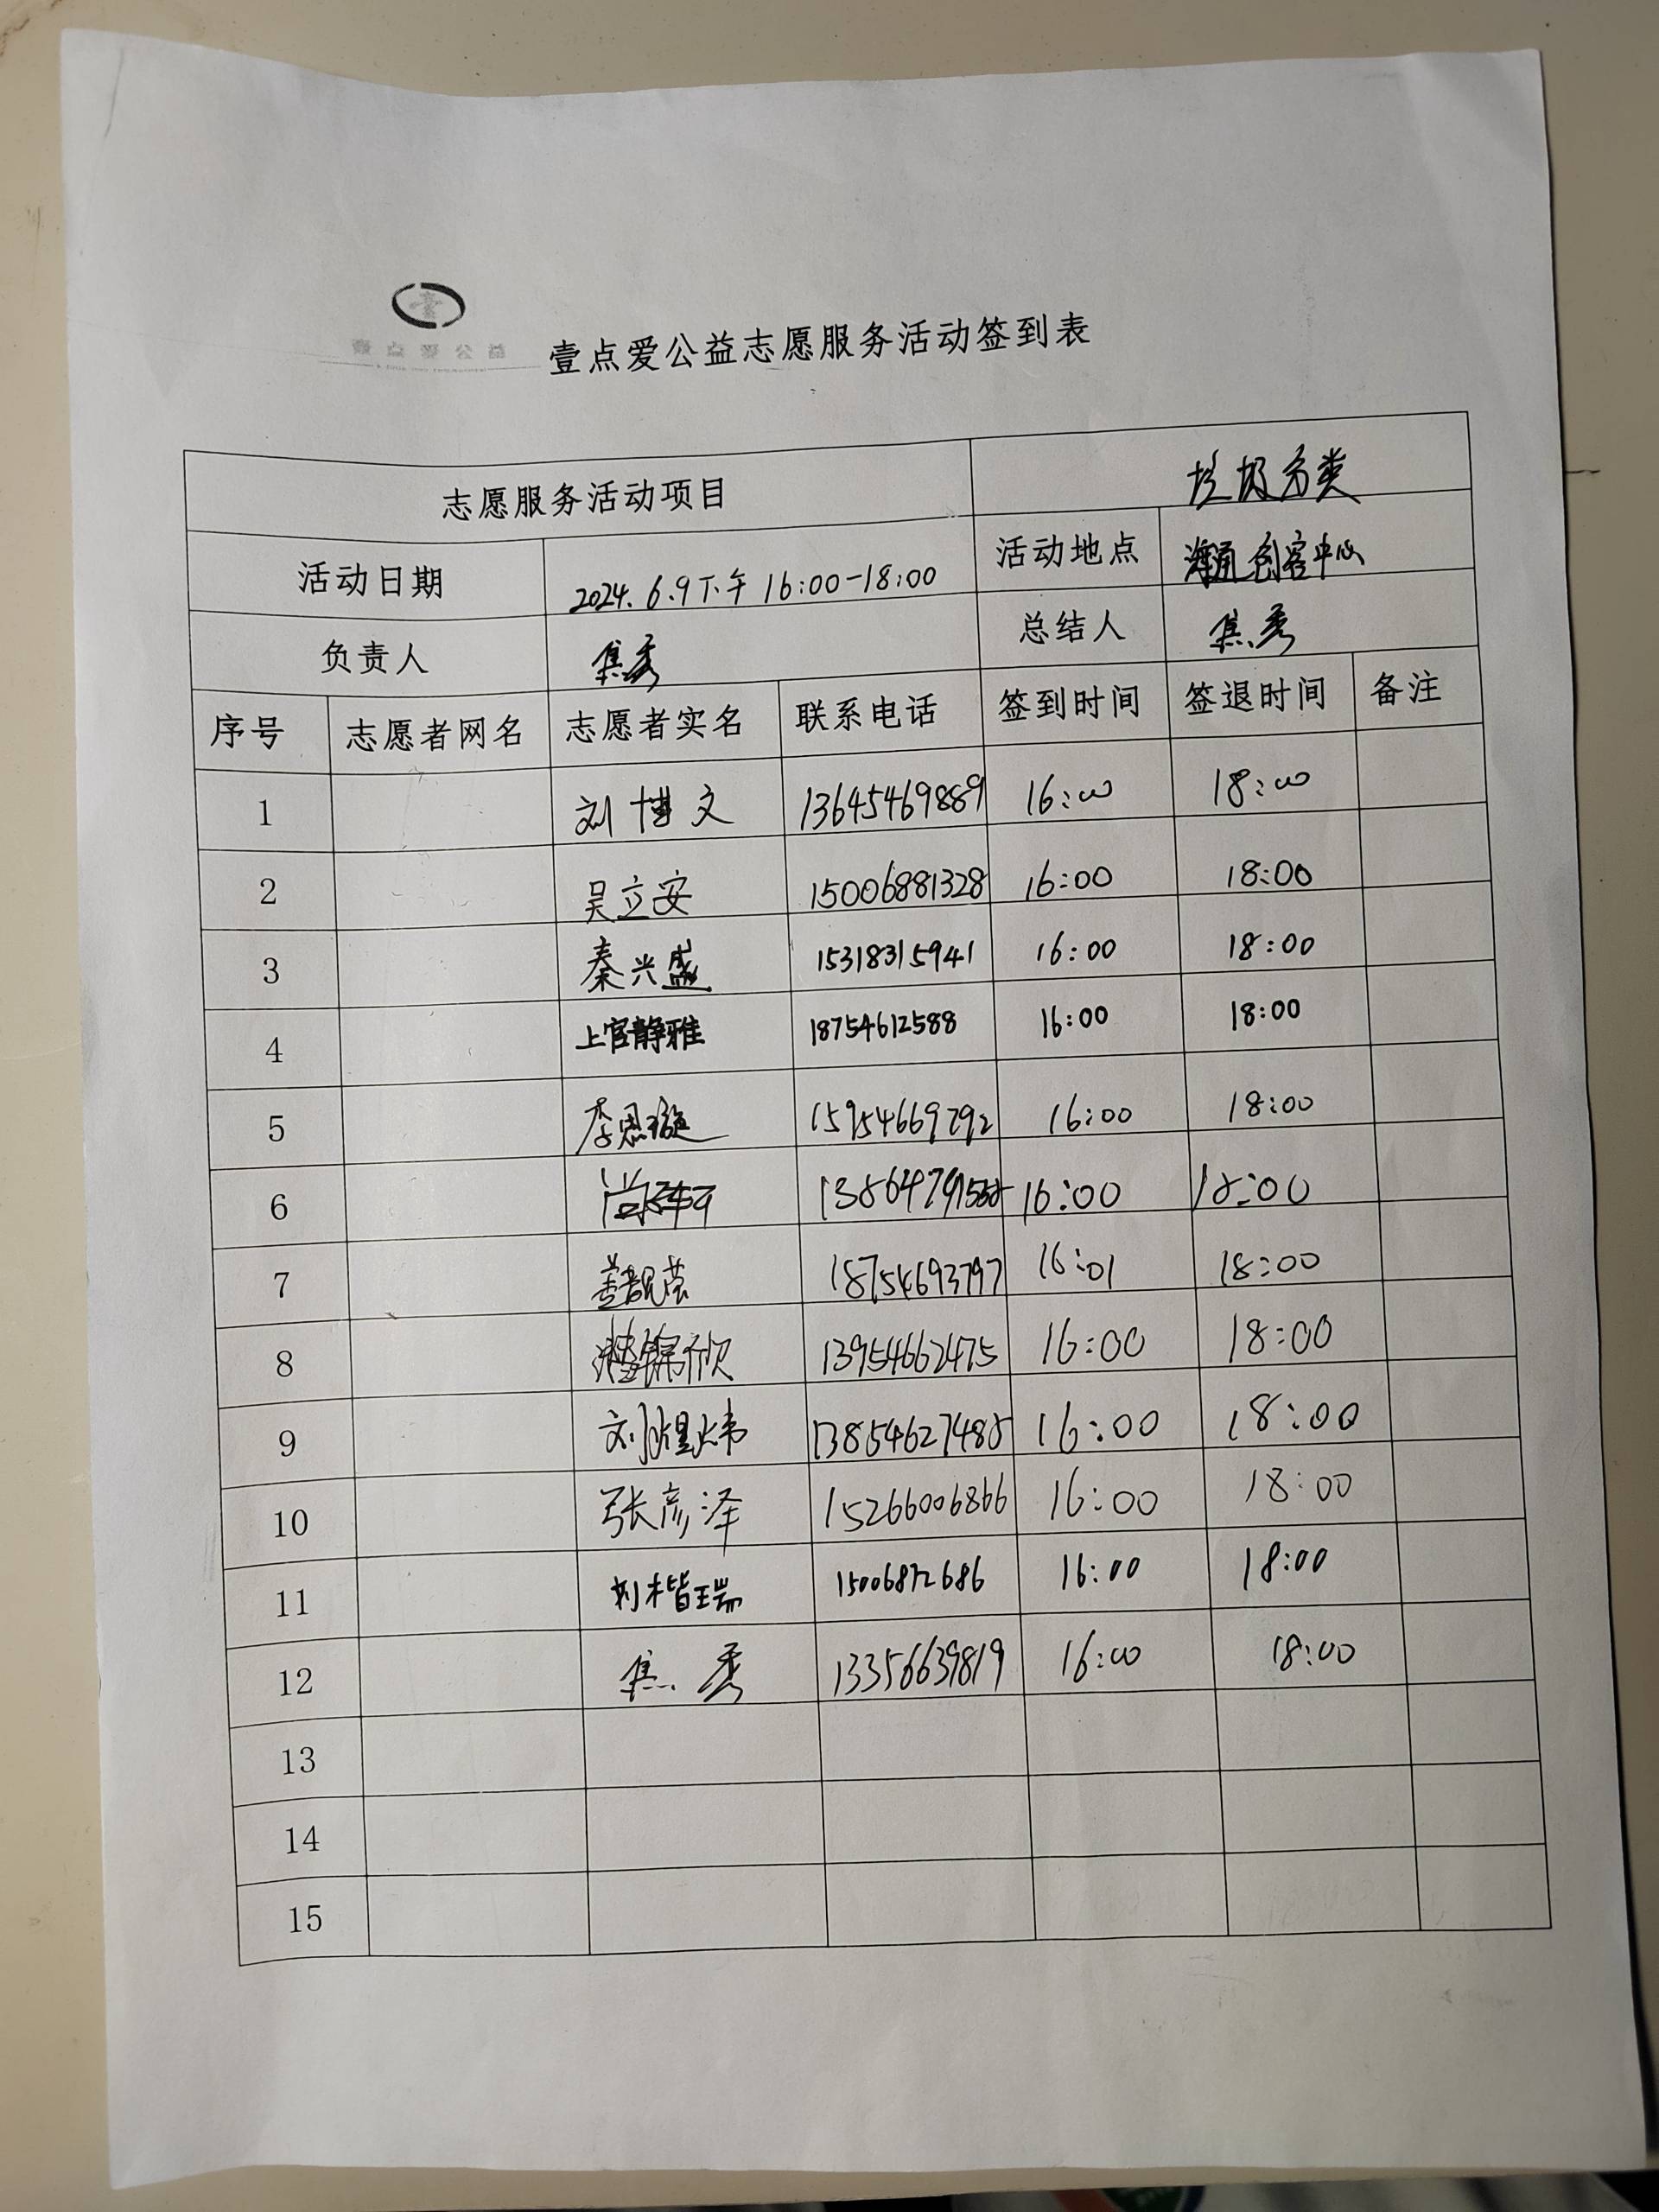 壹点爱公益
壹点爱公益志愿服务活动签到表
志愿服务活动项目 垃圾分类
活动日期 2024.6.9下午16:00-18:00 活动地点 海通创客中心
负责人 焦秀 总结人 焦秀
序号 志愿者网名 志愿者实名 联系电话 签到时间 签退时间 备注
1 刘博文 13645469889 16:00 18:00
2 吴立安 15006881328 16:00 18:00
3 秦兴盛 15318315941 16:00 18:00
4 上官静雅 18754612588 16:00 18:00
5 李恩璇 15954669292 16:00 18:00
6 16:00 18:00
7 18754693797 16:01 18:00
8 13954662475 16:00 18:00
9 刘煜炜 13854627485 16:00 18:00
10 张彦泽 15266006866 16:00 18:00
11 刘楷瑞 15006872686 16:00 18:00
12 焦秀 13356639819 16:00 18:00
13
14
15